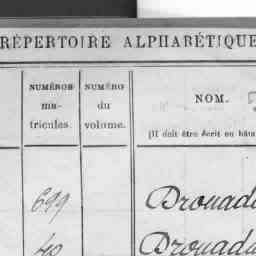 RÉPERTOIRE ALPHABÉTIQUE
NUMÉROS NUMÉRO
ma- du NOM.
tricules. volume. (Il doit être écrit en bâta
699 Drouad
40 Drouad